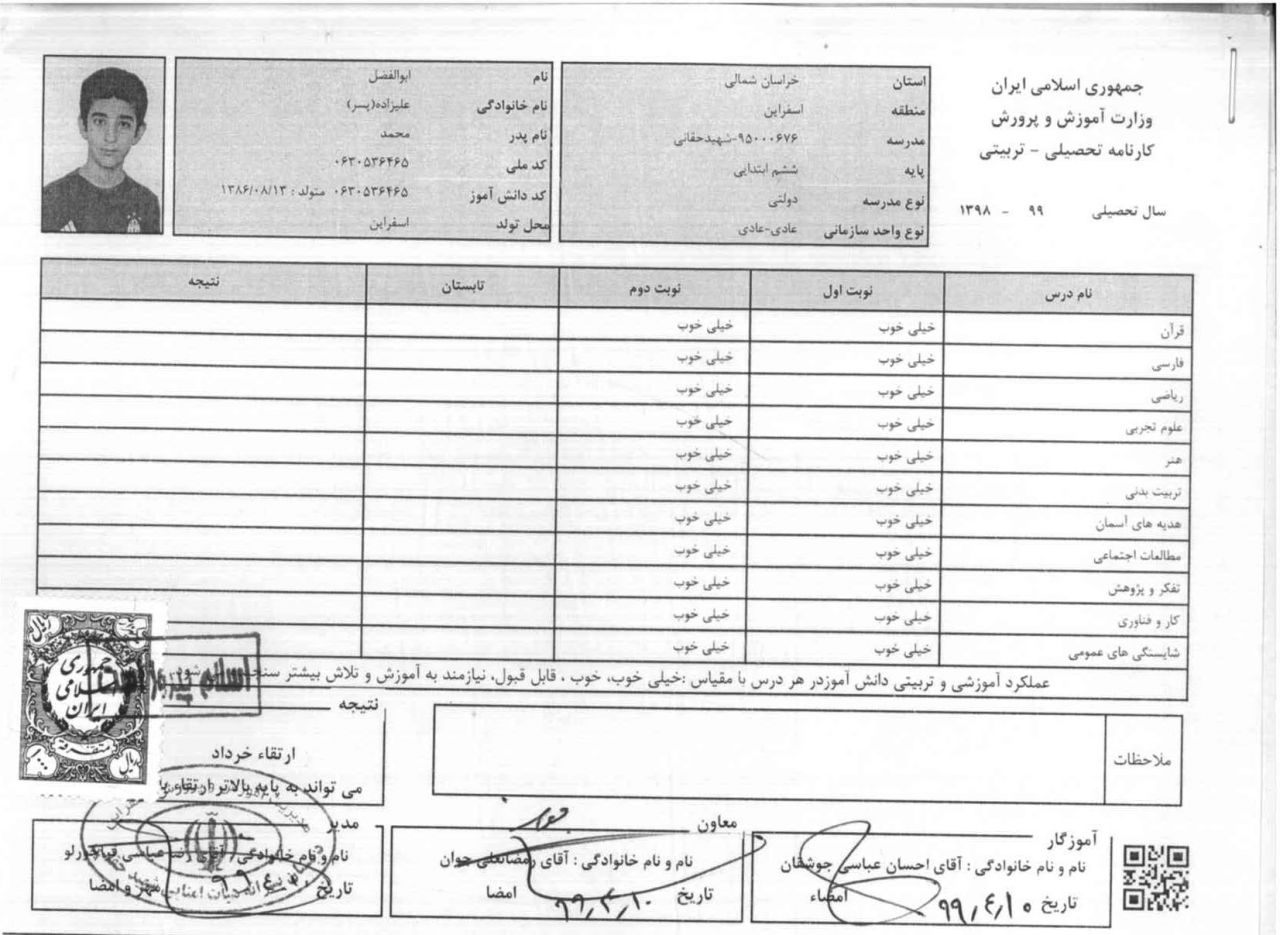 جمهوری اسلامی ایران
وزارت آموزش و پرورش
کارنامه تحصیلی - تربیتی
سال تحصیلی ۹۹ - ۱۳۹۸
استان خراسان شمالی
منطقه اسفراین
مدرسه ۹۵۰۰۰۶۷۶-شهیدحقانی
پایه ششم ابتدایی
نوع مدرسه دولتی
نوع واحد سازمانی عادی-عادی
نام ابوالفضل
نام خانوادگی علیزاده(پسر)
نام پدر محمد
کد ملی ۰۶۳۰۵۳۶۴۶۵
کد دانش آموز ۰۶۳۰۵۳۶۴۶۵ متولد : ۱۳۸۶/۰۸/۱۳
محل تولد اسفراین
نام درس نوبت اول نوبت دوم تابستان نتیجه
قرآن خیلی خوب خیلی خوب
فارسی خیلی خوب خیلی خوب
ریاضی خیلی خوب خیلی خوب
علوم تجربی خیلی خوب خیلی خوب
هنر خیلی خوب خیلی خوب
تربیت بدنی خیلی خوب خیلی خوب
هدیه های آسمان خیلی خوب خیلی خوب
مطالعات اجتماعی خیلی خوب خیلی خوب
تفکر و پژوهش خیلی خوب خیلی خوب
کار و فناوری خیلی خوب خیلی خوب
شایستگی های عمومی خیلی خوب خیلی خوب
عملکرد آموزشی و تربیتی دانش آموزدر هر درس با مقیاس :خیلی خوب، خوب ، قابل قبول، نیازمند به آموزش و تلاش بیشتر
ملاحظات
نتیجه
ارتقاء خرداد
می تواند به پایه بالاتر ارتقاء
جمهوری
اسلامی
ایران
متفرقه
ریال
۱۰۰۰
آموزگار
نام و نام خانوادگی : آقای احسان عباسی جوشقان
تاریخ ۹۹,۴,۱۰ امضاء
معاون
نام و نام خانوادگی : آقای رمضانعلی جوان
تاریخ ۹۹,۴,۱۰ امضا
مدیر
نام و نام خانوادگی : آقای رضا عباسی
تاریخ مهر و امضا